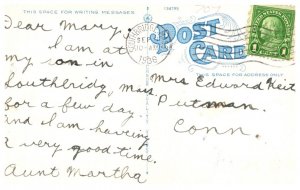 THIS SPACE FOR WRITING MESSAGES.
134799
POST CARD
THIS SPACE FOR ADDRESS ONLY.
SEP
1936
1
1
Dear Mary,
I am at
my son in
Southbridg, Mass.
for a few day.
and I am having
a very good time.
Aunt Martha
Mrs Edward
Putman.
Conn.